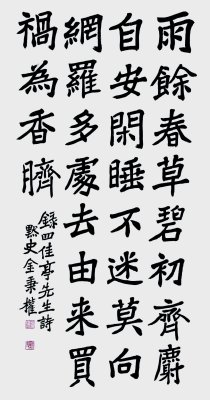 雨餘春草碧初齊麝
自安閑睡不迷莫向
網羅多處去由来買
禍為香臍
錄四佳亭先生詩
黙史金秉權